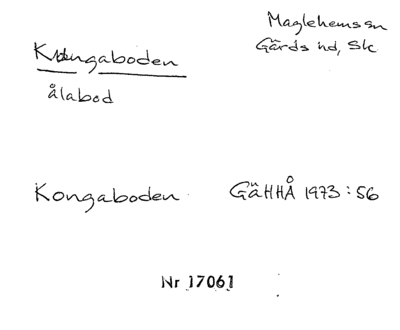 Maglehems sn
Gärds hd, Sk
Kongaboden
ålabod
Kongaboden GäHHÅ 1973:56
Nr 17061